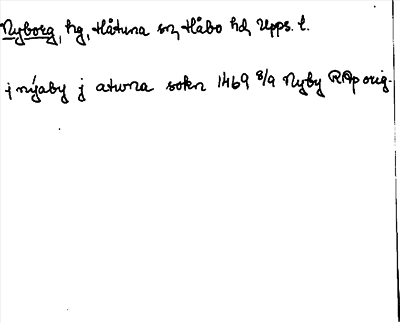 Nyborg, hg, Håtuna sn, Håbo hd, Upps. l.
j nýaby j atwna sokn 1469 8/9 Nyby RAp orig.